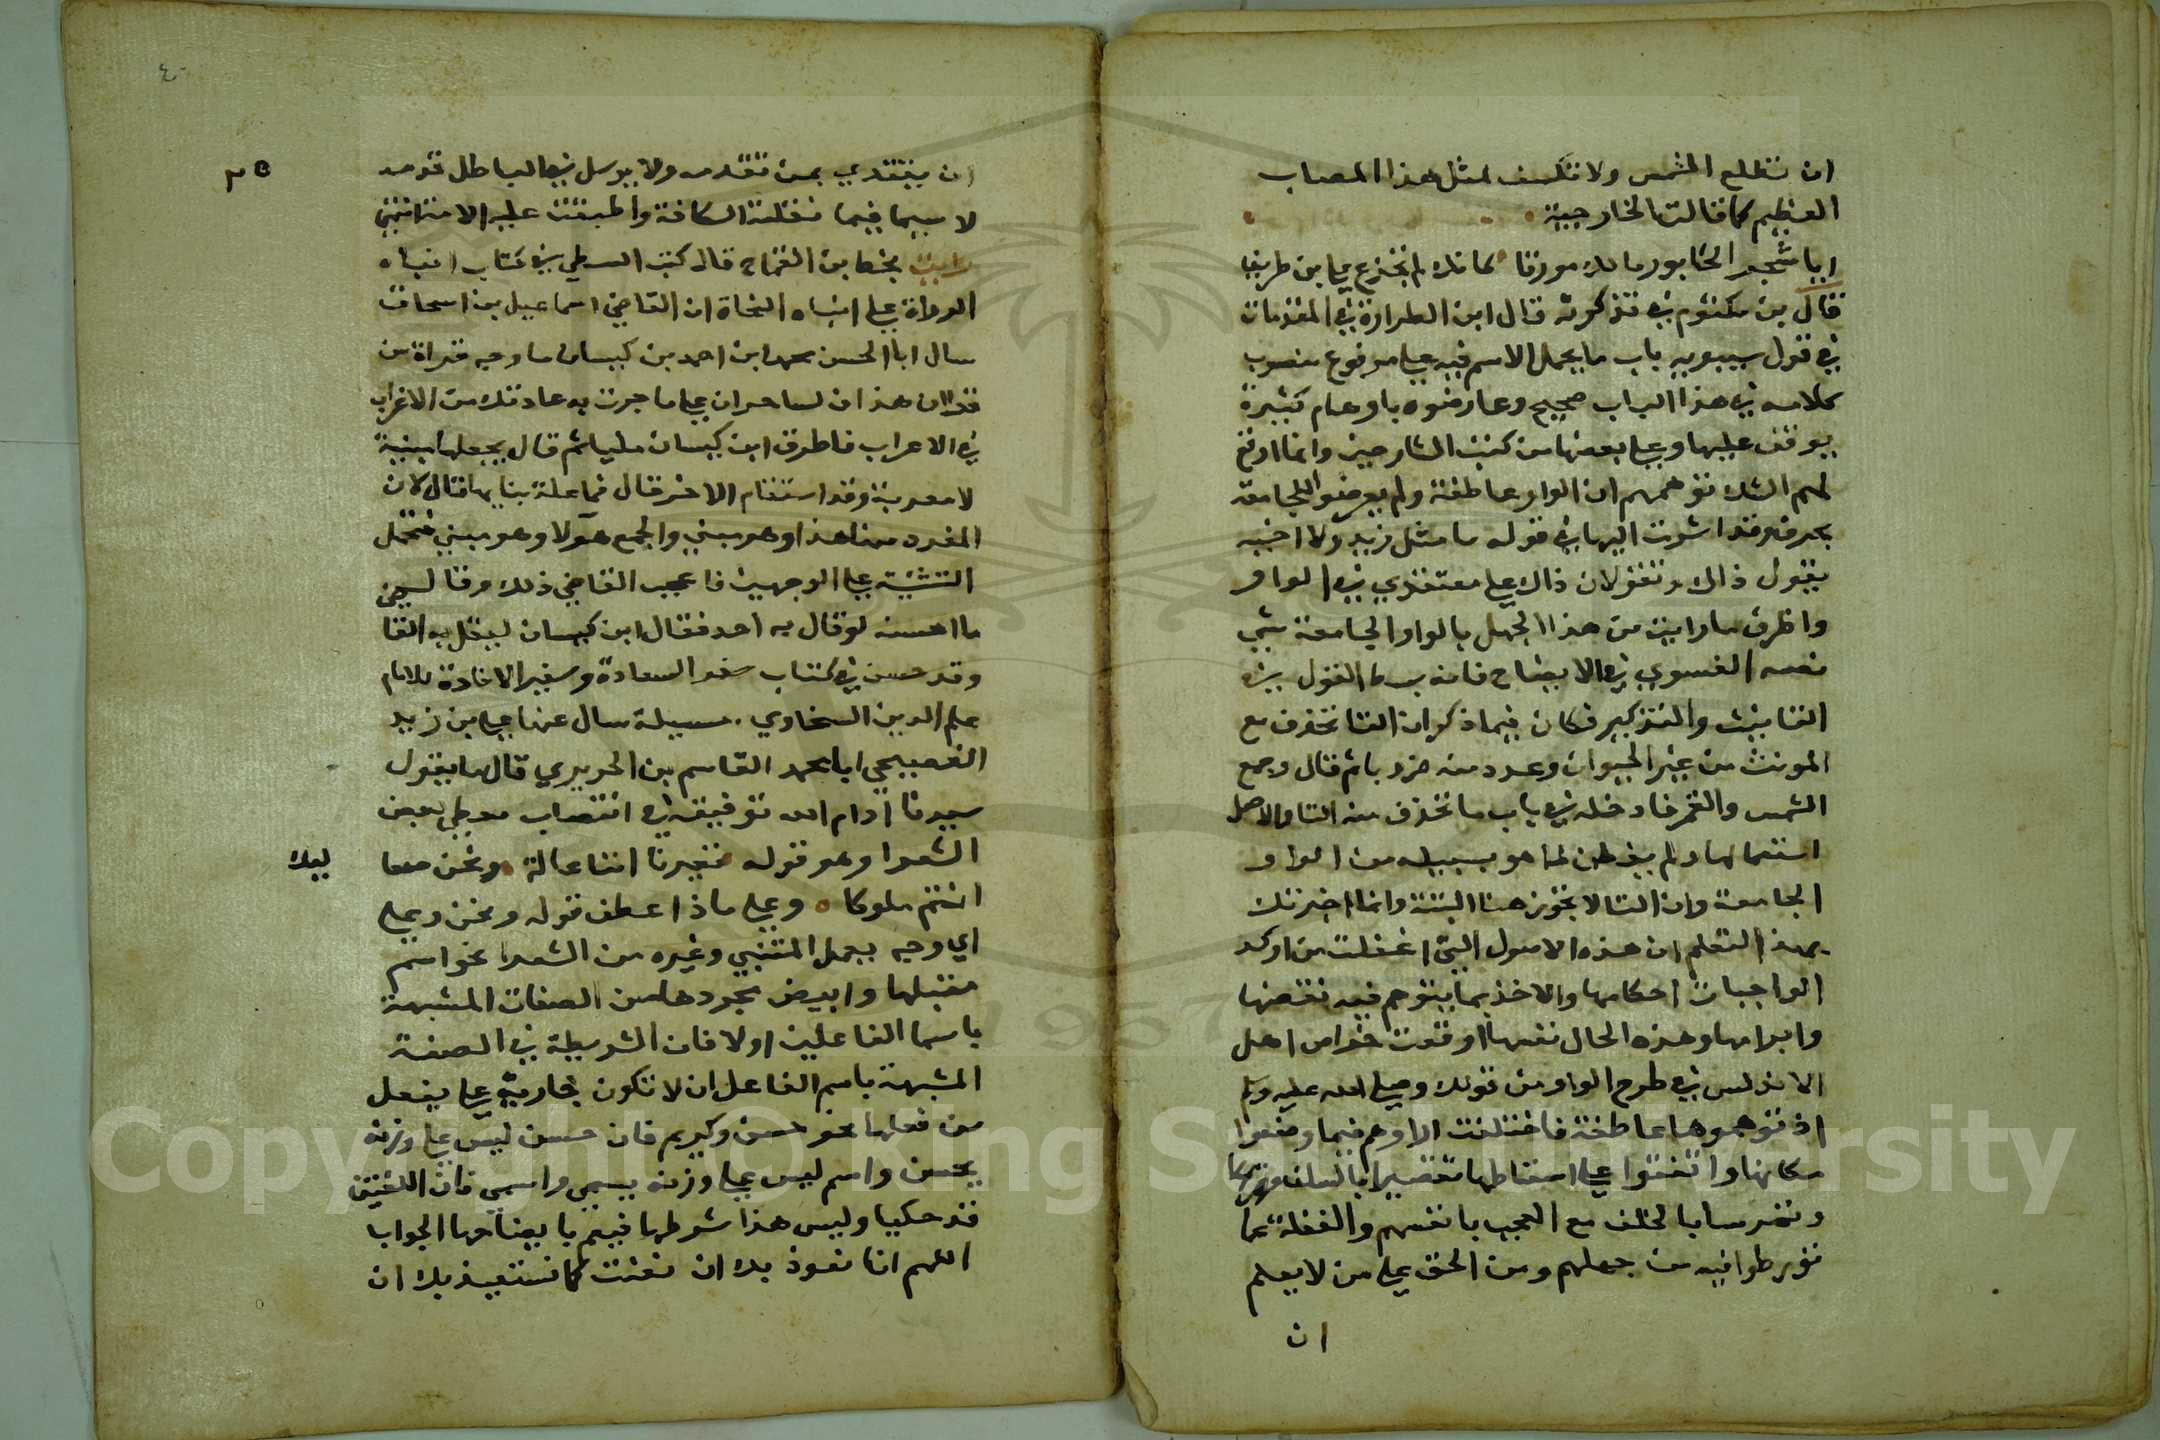 ان تطلع الشمس ولا تكسف لمثل هذا المصاب
العظيم كما قالت الخارجية
ايا شجر الخابور مالك مورقا كانك لم تجزع علي ابن طريف
قال بن مكتوم في تذكرته قال ابن الطراوة في المقدمات
في قول سيبويه باب ما يحمل الاسم فيه علي مرفوع منصوب
كلامه في هذا الباب صحيح وعارضوه باوهام كثيرة
يوقف عليها وعلي بعضها من كتب الشارحين وانما اوقع
لهم الشك توهمهم ان الواو عاطفة ولم يعرضوا للجامعة
بحرف وقد اشرت اليها في قوله ما مثل زيد ولا اخيه
يقول ذاك وتقولان ذاك علي معتقدي في الواو
واظرف ما رايت من هذا الجهل بالواو الجامعة شي
نصه الفسوي في الايضاح فانه بسط القول في
التانيث والتذكير فكان فيما ذكر ان التا تحذف مع
المونث من غير الحيوان وعدد منه ضروبا ثم قال وجمع
الشمس والقمر فادخله في باب ما تحذف منه التا والاصل
استعمالها ولم يفطن لما هو بسبيله من الواو
الجامعة وان التا لا تجوز هنا البتة وانما اخبرتك
بهذا لتعلم ان هذه الاصول التي اغفلت من اوكد
الواجبات احكامها والاخذ بما يتوهم فيه نقضها
وابرامها وهذه الحال نفسها اوقعت خواص اهل
الاندلس في طرح الواو من قولك وصلي الله عليه وسلم
اذ توهموها عاطفة فاختلفت اراوهم فيما وضعوا
مكانها واتفقوا علي اسقاطها تقصيرا بالسلف
وتمرسا بالخلف مع العجب بانفسهم والغفلة عما
تورطوا فيه من جهلهم ومن الحق علي من لا يعلم
ان
٤٠
ان يقتدي بمن تقدمه ولا يرسل في الباطل قومه
لا سيما فيما نقلته الكافة واطبقت عليه الامة انتهي
رايت بخط بن القماح قال كتب السطي في كتاب انباه
الرواة علي انباه النحاة ان القاضي اسماعيل بن اسحاق
سال ابا الحسن محمد ابن احمد بن كيسان ما وجه قراة من
قرا ان هذان لساحران علي ما جرت به عادتك من الاغراب
في الاعراب فاطرق ابن كيسان مليا ثم قال يجعلها مبنية
لا معربة وقد استقام الامر قال فما علة بنايها قال لان
المفرد منها هذا وهو مبني والجمع هولا وهو مبني فتحمل
التثنية علي الوجهين فاعجب القاضي ذلك وقال
ما احسنه لو قال به احد فقال ابن كيسان ليقل به القا
وقد حسن في كتاب سفر السعادة وسفير الافادة للامام
علم الدين السخاوي مسيلة سال عنها علي بن زيد
الفصيحي ابا محمد القاسم بن الحريري قال ما يقول
سيدنا ادام الله توفيقه في انتصاب لفظي بعض
الشعرا وهو قوله تغيرنا اننا عالة ونحن صعا
ليك
انتم ملوكا وعلي ماذا عطف قوله ونحن وعلي
اي وجه يحمل المتنبي وغيره من الشعرا نحو اسم
مقتبلها وابيض مجردها من الصفات المشبهة
باسما الفاعلين اولا فان الشريطة في الصفة
المشبهة باسم الفاعل ان لا تكون جارية علي يفعل
من فعلها نحو حسن وكريم فان حسن ليس علي وزنه
يحسن واسم ليس علي وزنه يسمي واسمي فان اللغتين
قد حكيا وليس هذا شرطها فينعم بايضاحها الجواب
اللهم انا نعوذ بك ان نعنت كما نستعيذ بك ان